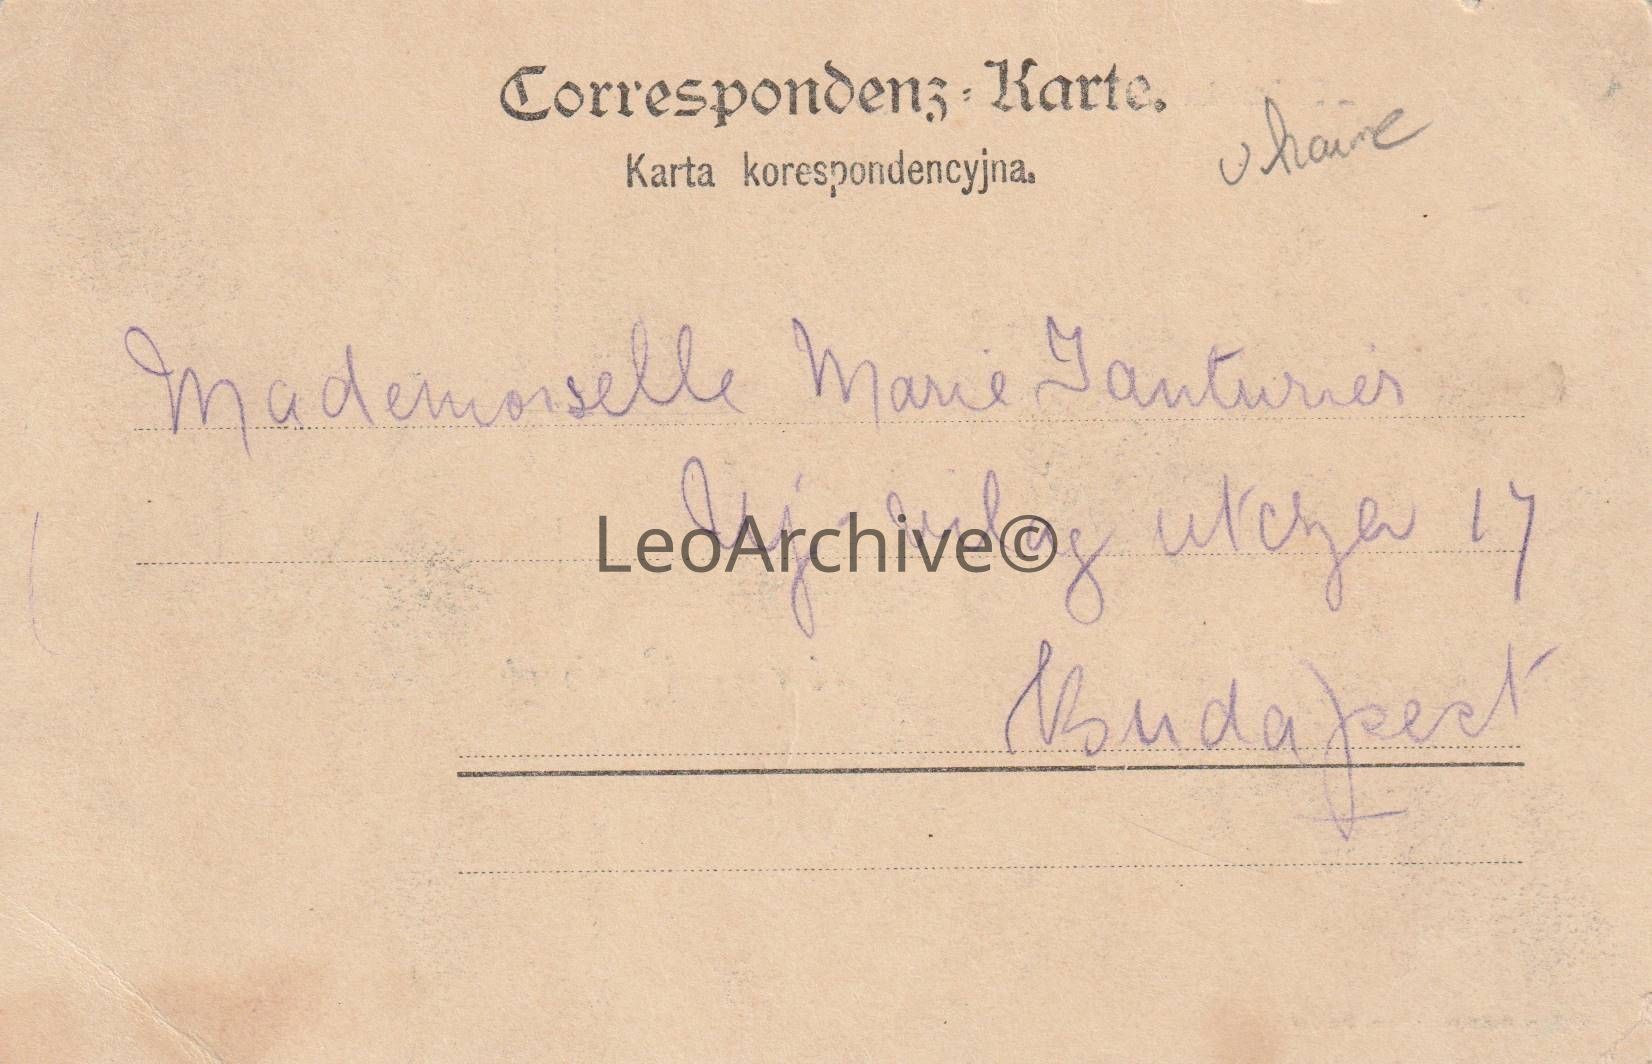 Correspondenz-Karte.
Karta korespondencyjna.
Ukraine
Mademoiselle Marie
Uj-világ utcza 17
LeoArchive©
Budapest